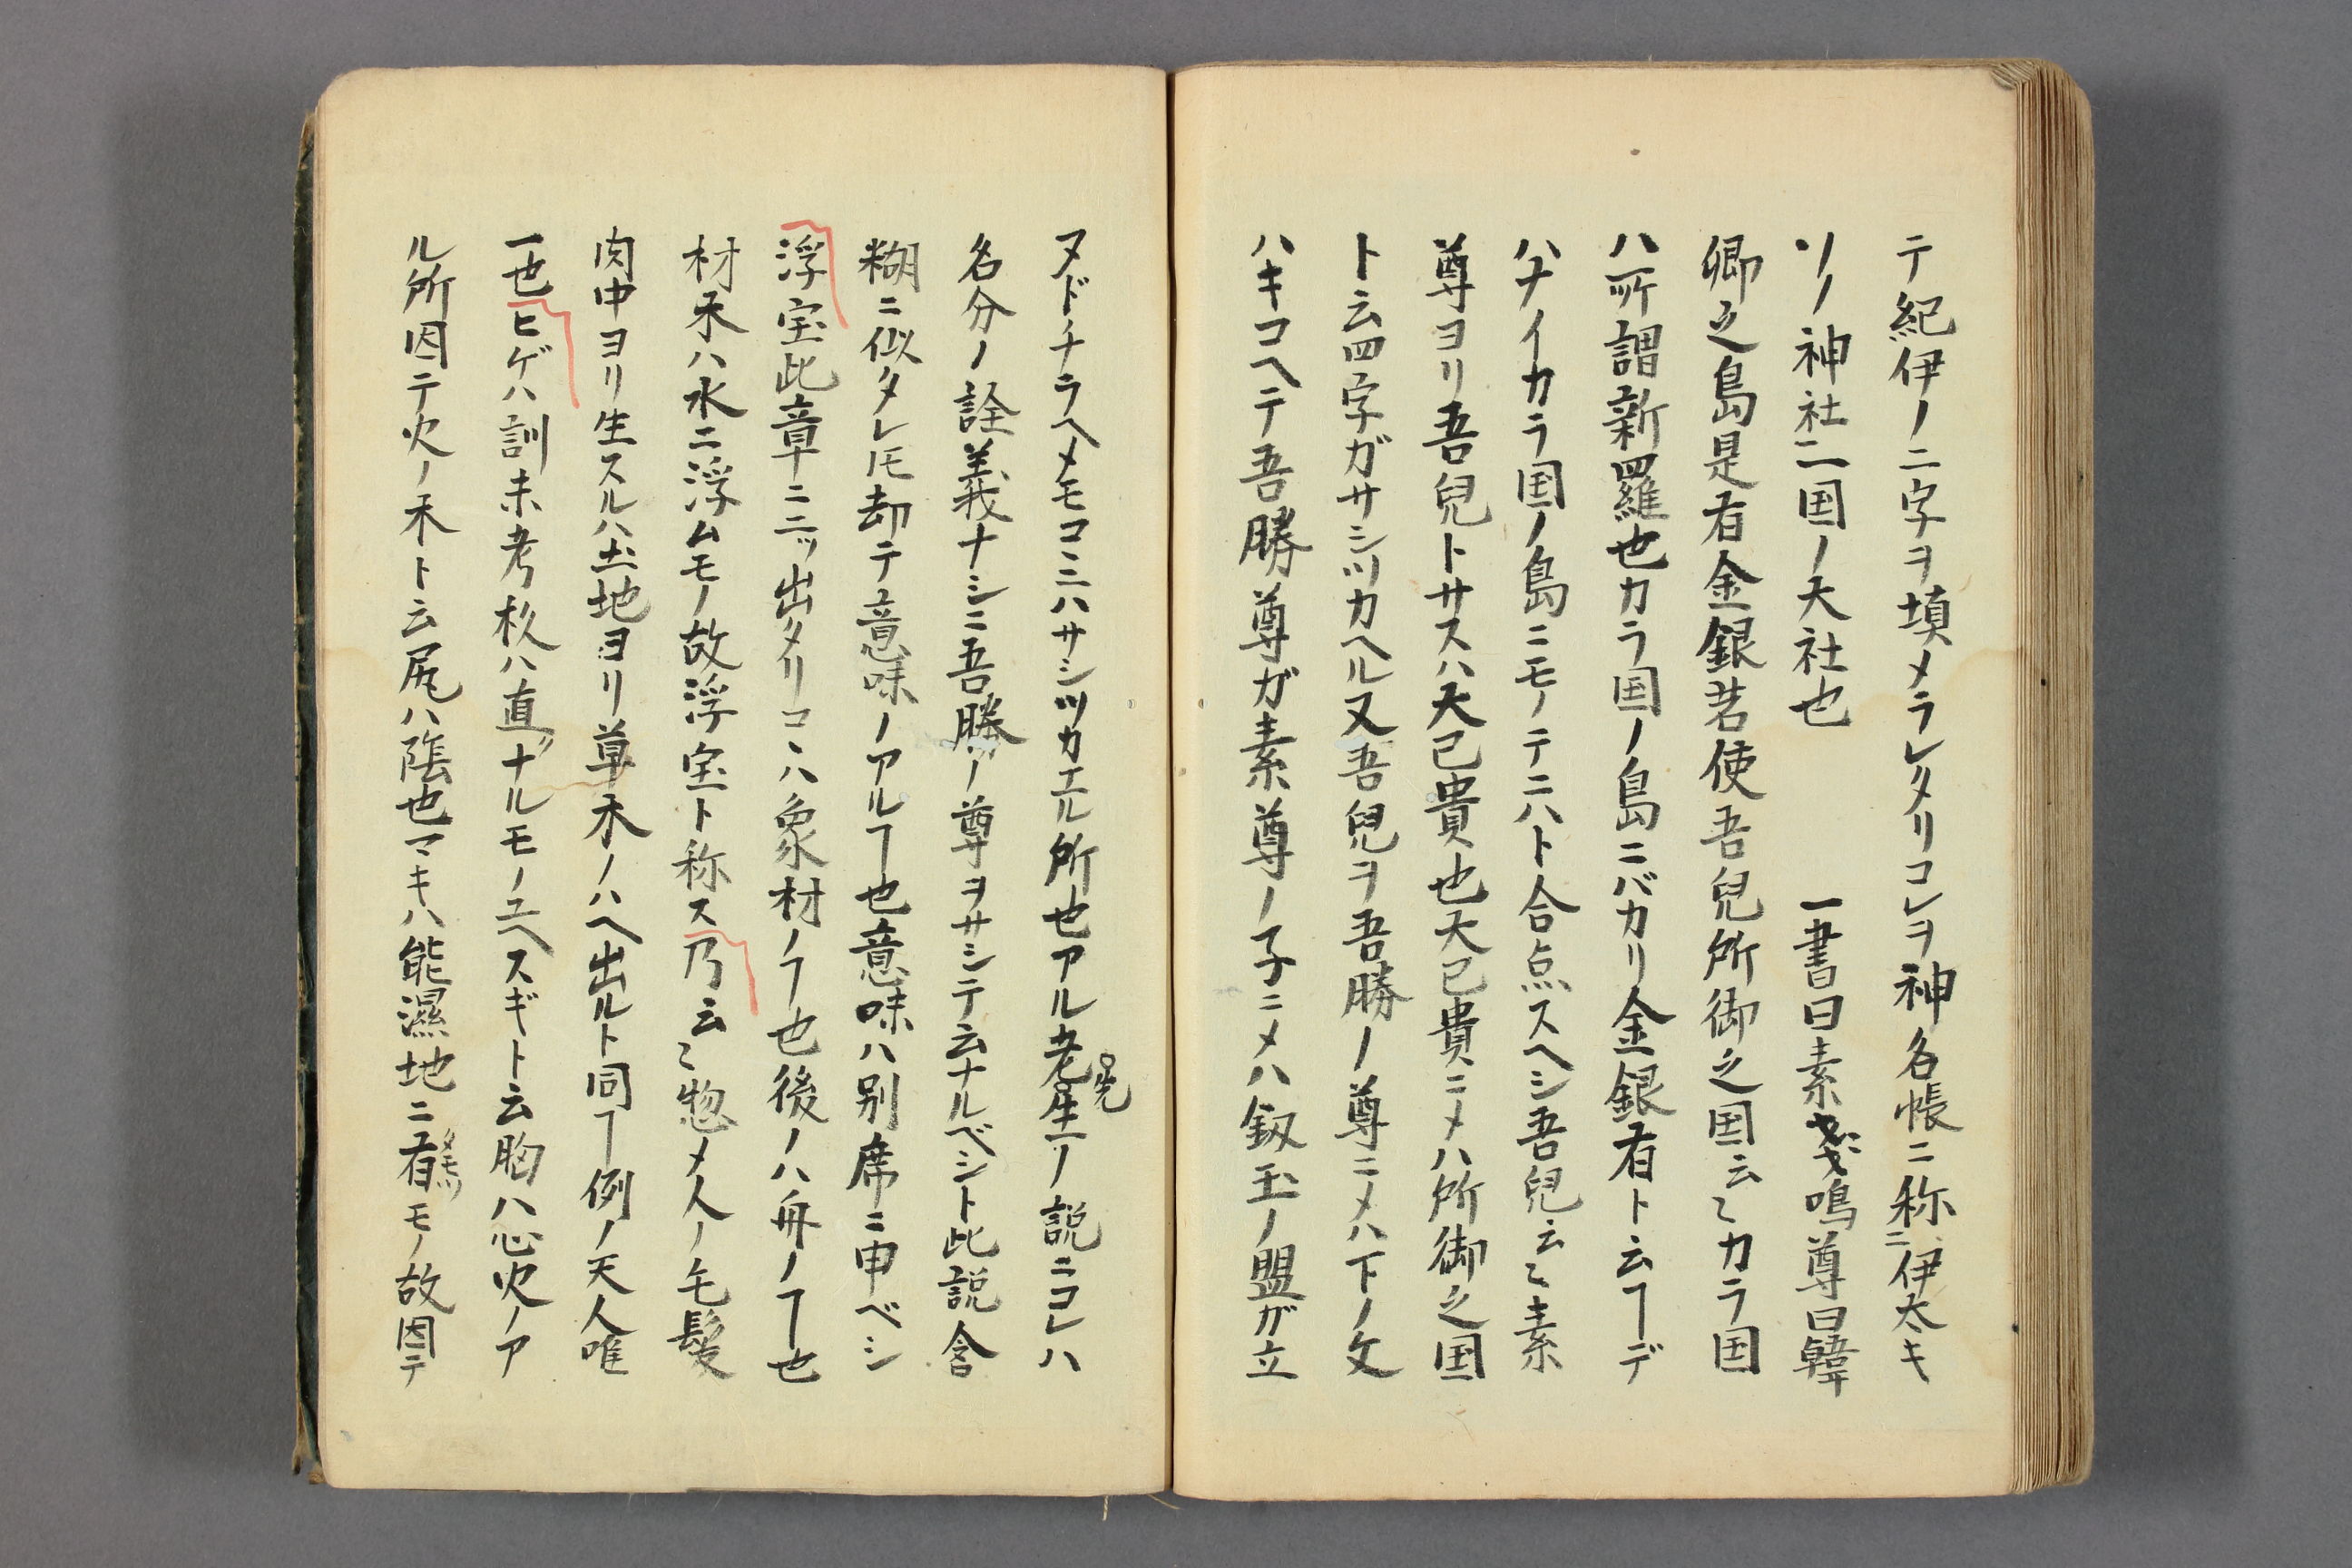 テ紀伊ノ二字ヲ填メラレタリコレヲ神名帳ニ称ニ伊太キ
ソノ神社一国ノ大社也　一書曰素戔嗚尊曰韓
郷之島是有金銀若使吾兒所御之国云々カラ国
ハ所謂新羅也カラ国ノ島ニバカリ金銀有ト云ヿデ
ハナイカラ国ノ島ニモノテニハト合点スヘシ吾兒云々素
尊ヨリ吾兒トサスハ大己貴也大己貴ニメハ所御之国
ト云四字ガサシツカヘル又吾兒ヲ吾勝ノ尊ニメハ下ノ文
ハキコヘテ吾勝尊ガ素尊ノ子ニメハ釼玉ノ盟ガ立
ヌドチラヘメモコヽハサシツカエル所也アル老先生ノ説ニコレハ
名分ノ詮義ナシニ吾勝ノ尊ヲサシテ云ナルベシト此説含
糊ニ似タレ𪜈却テ意味ノアルヿ也意味ハ別席ニ申ベシ
浮宝此章ニ二ッ出タリコヽハ象材ノヿ也後ノハ舟ノヿ也
材木ハ水ニ浮ムモノ故浮宝ト称ス乃云々惣メ人ノ毛髪
肉中ヨリ生スルハ土地ヨリ草木ノハヘ出ルト同ヿ例ノ天人唯
一也ヒゲハ訓未考杉ハ直ナルモノユヘスギト云胸ハ心火ノア
ル所因テ火ノ木ト云尻ハ陰也マキハ能濕地ニ有モノ故因テ